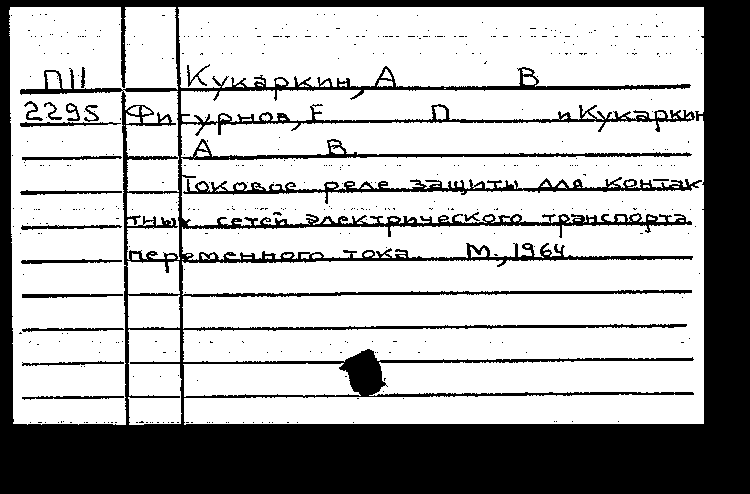 П11 Кукаркин, А В
2295 Фигурнов, Е П и Кукаркин
А В.
Токовое реле защиты для контак-
тных сетей электрического транспорта
переменного тока М., 1964